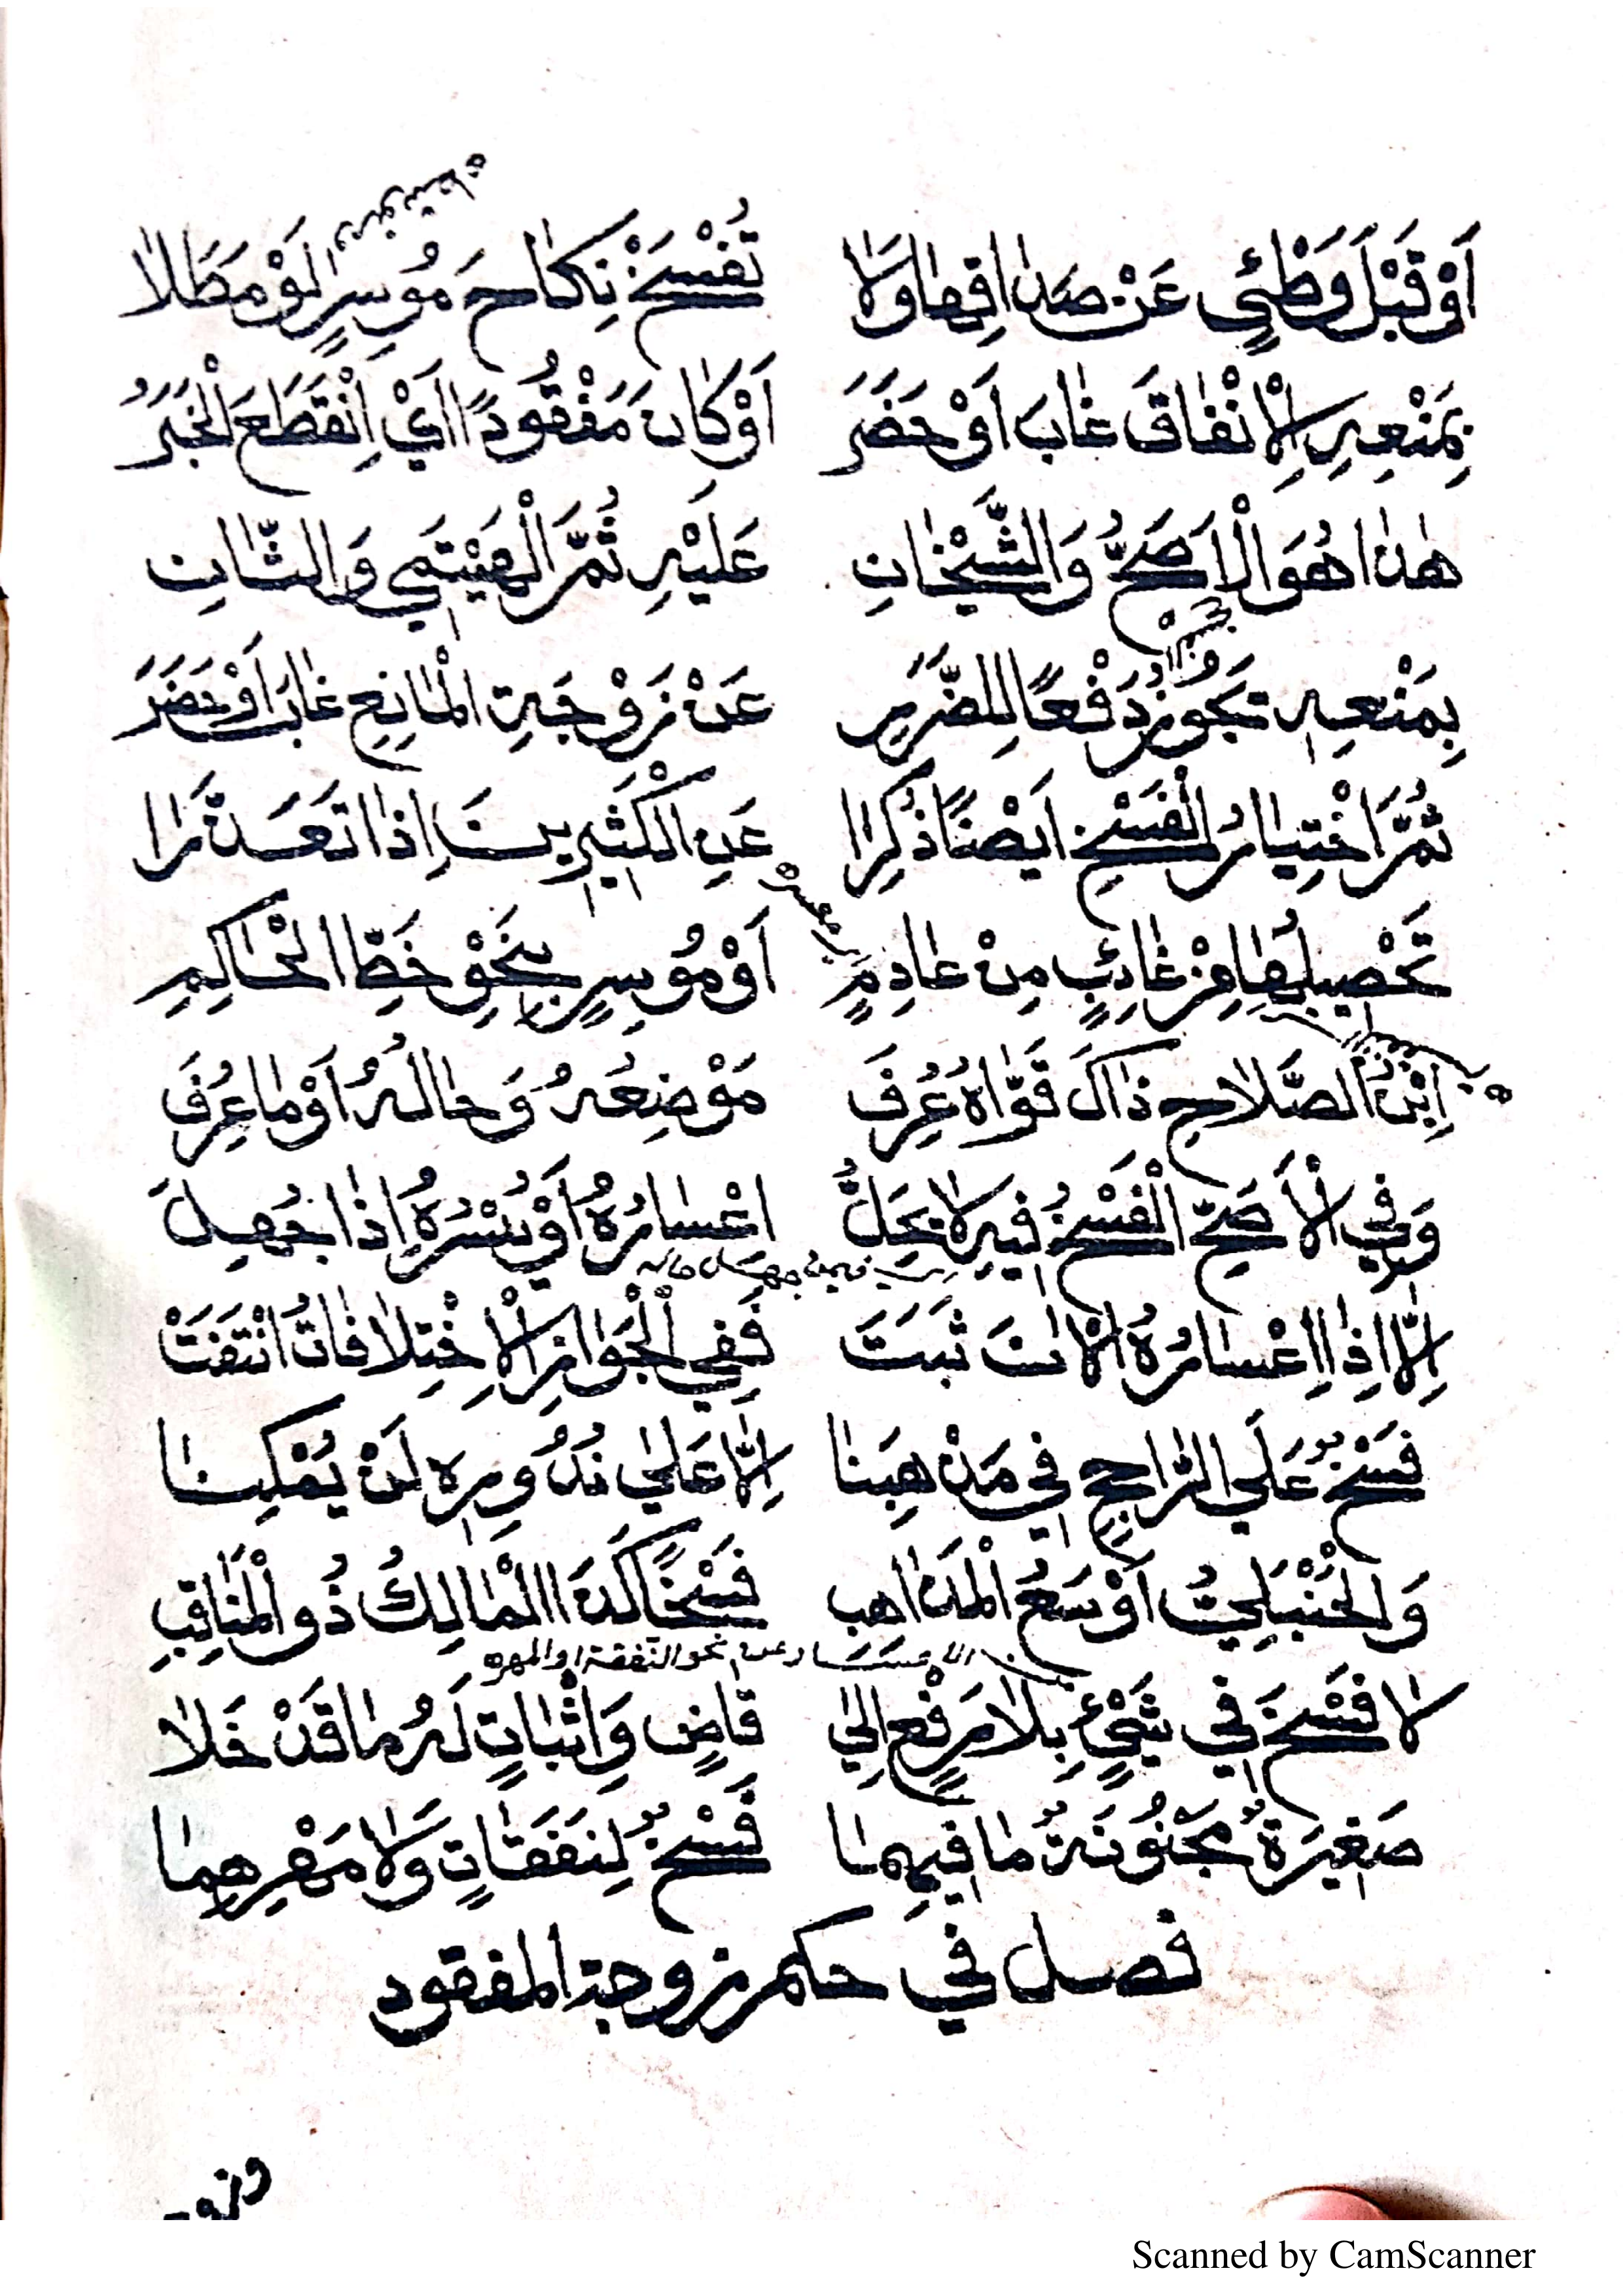 أَوْ قَبْلَ وَطْئٍ عَنْ صَدَاقِهَا وَلَا تُفْسَخْ نِكَاحَ مُوسِرٍ لَوْ مَطَلَا
بِمَنْعِهِ لِاْنْفَاقَ غَابَ أَوْ حَضَرَ أَوْ كَانَ مَفْقُودًا أَيْ اِنْقَطَعَ الْخَبَرُ
هٰذَا هُوَ الْاَصَحُّ وَالشَّيْخَانِ عَلَيْهِ ثُمَّ الْهَيْتَمِي وَالثَّانِ
بِمَنْعِهِ تَجُوزُ دَفْعًا لِلضَّرَرِ عَنْ زَوْجَةِ الْمَانِعِ غَابَ أَوْ حَضَرَ
ثُمَّ اخْتِيَارُ الْفَسْخِ اَيْضًا ذُكِرَا عَنِ الْكَثِيرِينَ اِذَا تَعَذَّرَا
تَحْصِيلُهَا مِنْ غَائِبٍ مِنْ عَادِمٍ أَوْ مُوسِرٍ بِنَحْوِ خَطِّ الْحَاكِمِ
اِبْنُ الصَّلَاحِ ذَاكَ قَوَّاهُ عُرِفَ مَوْضِعُهُ وَحَالُهُ أَوْ مَا عُرِفَ
وَفِي الْأَصَحِّ الْفَسْخُ فِيهِ لَا يَحَلُّ اعْسَارُهُ أَوْ يُسْرُهُ اِذَا جُهِلَ
اِلَّا اِذَا اِعْسَارُهُ الْاٰنَ ثَبَتَ فَفِي الْجَوَازِ الْاِخْتِلَافَاتُ انْتَفَتْ
فَسْخٌ عَلَى الرَّاجِحِ فِي مَذْهَبِنَا اِلَّا عَلَى نُدُورِهِ لَنْ يُمْكِنَا
وَالْحَنْبَلِيُّ أَوْسَعُ الْمَذَاهِبِ فَسْخًا كَذَا الْمَالِكُ ذُو الْمَنَاقِبِ
الاعسار عن نحو النفقة او المهر
لَا فَسْخَ فِي شَيْءٍ بِلَا رَفْعٍ اِلَى قَاضٍ وَاِثْبَاتٍ لَهُ مَا قَدْ خَلَا
صَغِيرَةٌ مَجْنُونَةٌ مَا فِيهِمَا فَسْخٌ لِنَفَقَاتٍ وَلَا مَهْرِهِمَا
فصل في حكم زوجة المفقود
Scanned by CamScanner